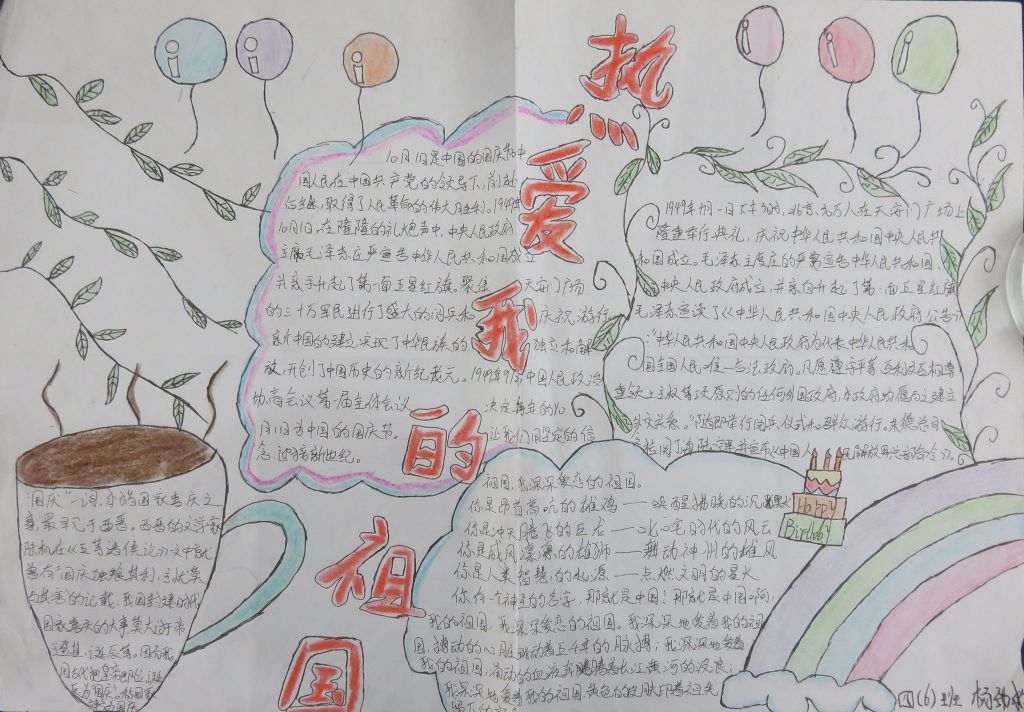 热爱我的祖国
10月1日是中国的国庆节中
国人民在中国共产党的领导下,前赴
后继,取得了人民革命的伟大胜利。1949年
10月1日,在隆隆的礼炮声中,中央人民政府
主席毛泽东庄严宣告中华人民共和国成立
并亲手升起了第一面五星红旗。聚集 天安门广场
的三十万军民进行了盛大的阅兵和 庆祝游行
新中国的建立,实现了中华民族的 独立和解
放,开创了中国历史的新纪元。1949年 中国人民政治
协商会议第一届全体会议 决定每年的10
月1日为中国的国庆节。 让我们用坚定的信
念,迎接新世纪。
1949年10月一日下午3时,北京 万人在天安门广场上
隆重举行典礼,庆祝中华人民共和国中央人民
和国成立。毛泽东主席庄的严宣告中华人民共和国、
中央人民政府成立,并亲自升起了第一面五星红旗
毛泽东宣读了《中华人民共和国中央人民政府公告》
:"中华人民共和国中央人民政府为代表中华人民共和
国全国人民唯一合法政府。凡愿遵守平等、互利及互相尊
重领土主权等项原则的任何外国政府,本政府均愿与之建立
外交关系。"随即举行阅兵仪式和群众游行。朱德总司
"国庆"一词,本指国家喜庆之
事,最早见于西晋。西晋的文学家
陆机在《五等诸侯论》一文中就
曾有"国庆独飨其利,主忧莫
与其害"的记载、我国封建时代
国家喜庆的大事莫大过于帝
王的登基、诞辰等。因而我
国古代把皇帝即位、诞
辰为"国庆"。
祖国,我深深爱恋的祖国。
你是昂首高吭的雄鸡——唤醒拂晓的沉默
你是冲天腾飞的巨龙——叱咤时代的风云
你是威风凛凛的雄狮——舞动神州的雄风
你是人类智慧的起源——点燃文明的星火
你有一个神圣的名字,那就是中国!那就是中国啊,
我的祖国,我深深爱恋的祖国。我深深地爱着我的祖
国,搏动的心脏跳动着五千年的脉搏,我深深地爱着
我的祖国,涌动的血液奔腾着长江黄河的波浪;
我深深地爱着我的祖国,黄色的皮肤印着祖先
Happy
Birthday
四(6)班